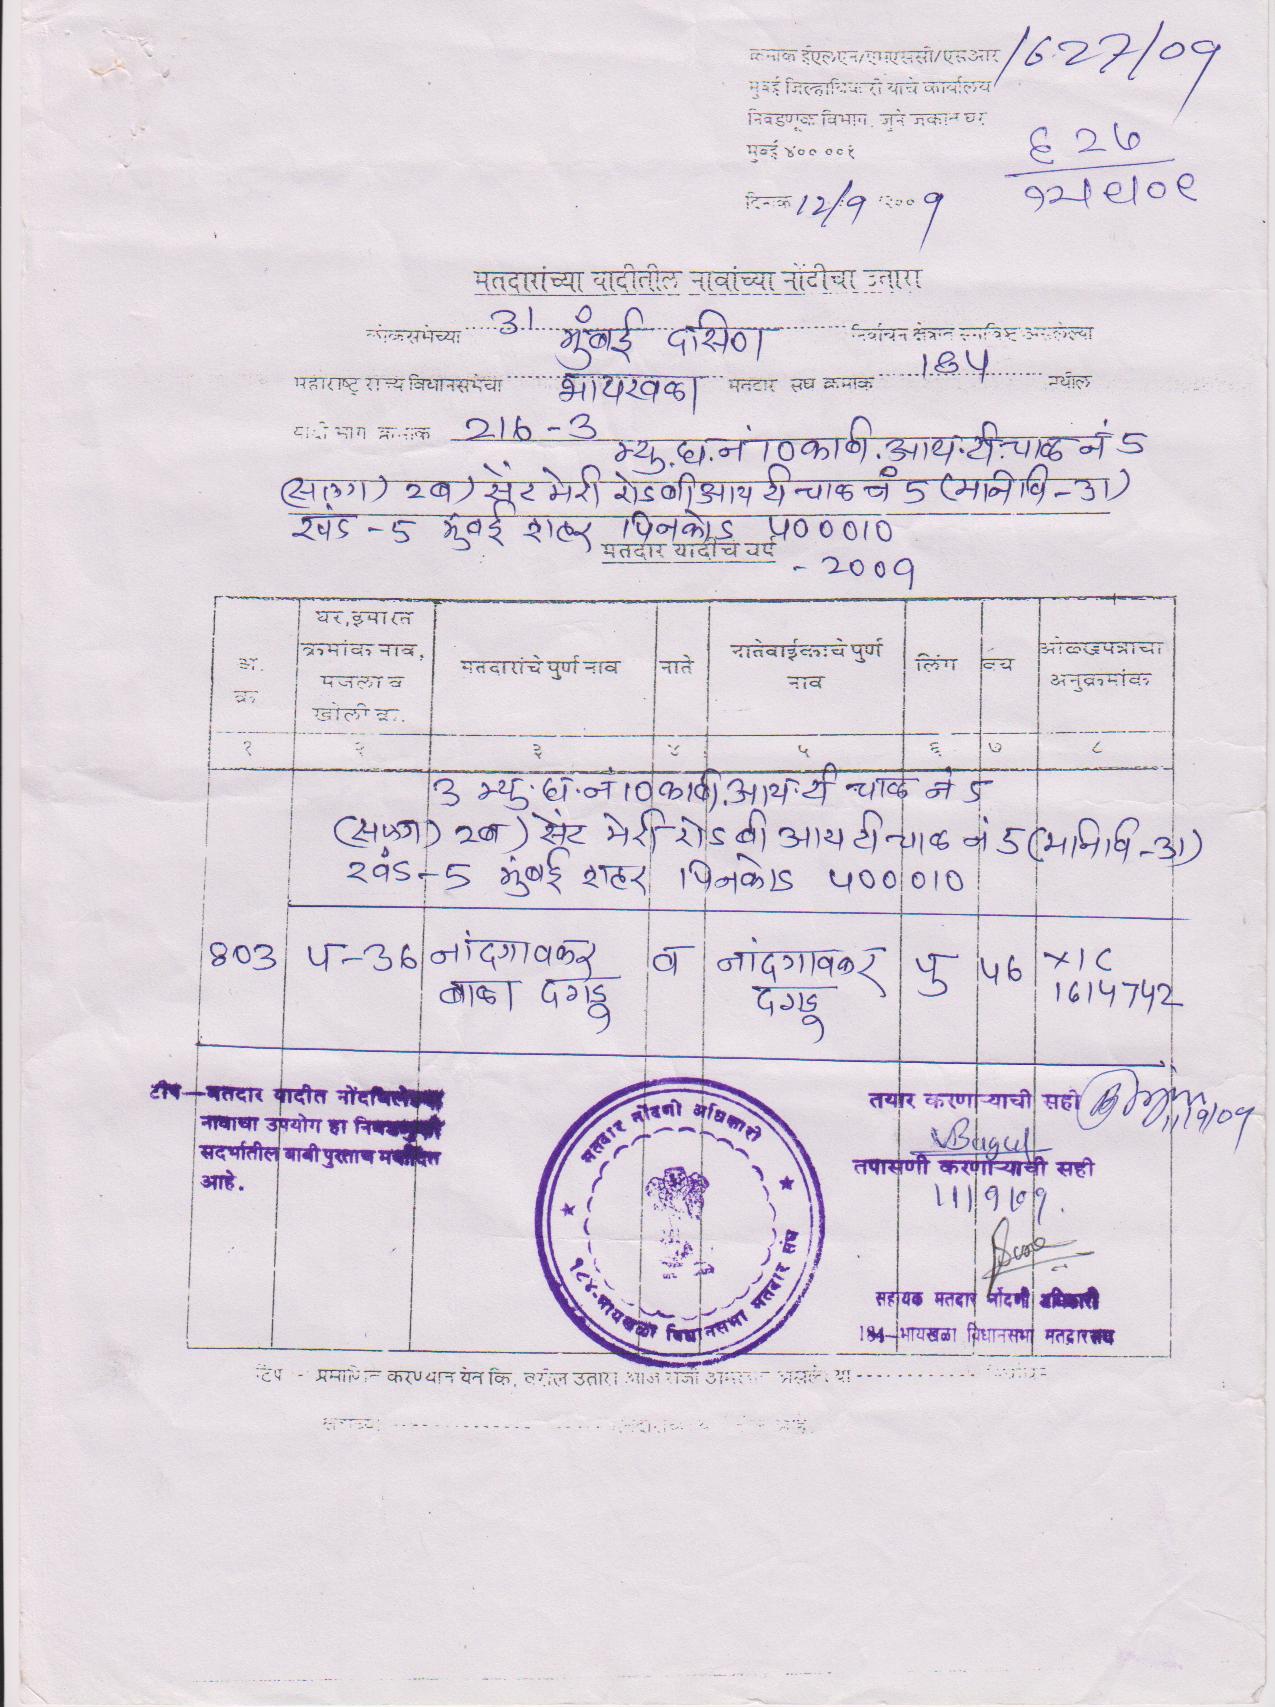 क्रमांक ईएलएन/एमएससी/एसआर /627/09
मुंबई जिल्हाधिकारी यांचे कार्यालय
निवडणूक विभाग, जुने जकात घर
मुंबई ४०० ००१
६२७
दिनांक 12/9 /२००9
मतदारांच्या यादीतील नावांच्या नोंदीचा उतारा
लोकसभेच्या 31 मुंबई दक्षिण निर्वाचन क्षेत्रात समाविष्ट असलेल्या
महाराष्ट्र राज्य विधानसभेचा भायखळा मतदार संघ क्रमांक 184 मधील
यादी भाग क्रमांक 216-3
म्यु.घ.नं 10 का बी.आय.टी.चाळ नं 5
(सलग) 2ब) सेंट मेरी रोड बी आय टी चाळ नं 5 (मानिवि-31)
खंड-5 मुंबई शहर पिनकोड 400010
मतदार यादीचे वर्ष
-2009
अ. क्र
घर,इमारत क्रमांक नाव, मजला व खोली क्र.
मतदारांचे पुर्ण नाव
नाते
नातेवाईकाचे पुर्ण नाव
लिंग
वय
ओळखपत्राचा अनुक्रमांक
१ २ ३ ४ ५ ६ ७ ८
3 म्यु.घ.नं 10 का बी.आय.टी चाळ नं 5
(सलग) 2ब) सेंट मेरी रोड बी आय टी चाळ नं 5 (मानिवि-31)
खंड-5 मुंबई शहर पिनकोड 400010
803 प-36 नांदगावकर व नांदगावकर पु 46 XIC
बाळा दगडू दगडू 1614742
टीप—मतदार यादीत नोंदविलेल्या
नावाचा उपयोग हा निवडणुकी
संदर्भातील बाबी पुरताच मर्यादित
आहे.
मतदार नोंदणी अधिकारी
१८४-भायखळा विधानसभा मतदार संघ
तयार करणाऱ्याची सही
11/9/09
Bagul
तपासणी करणाऱ्याची सही
11/9/09.
सहायक मतदार नोंदणी अधिकारी
184-भायखळा विधानसभा मतदारसंघ
टिप - प्रमाणित करण्यात येते कि, वरील उतारा आज रोजी